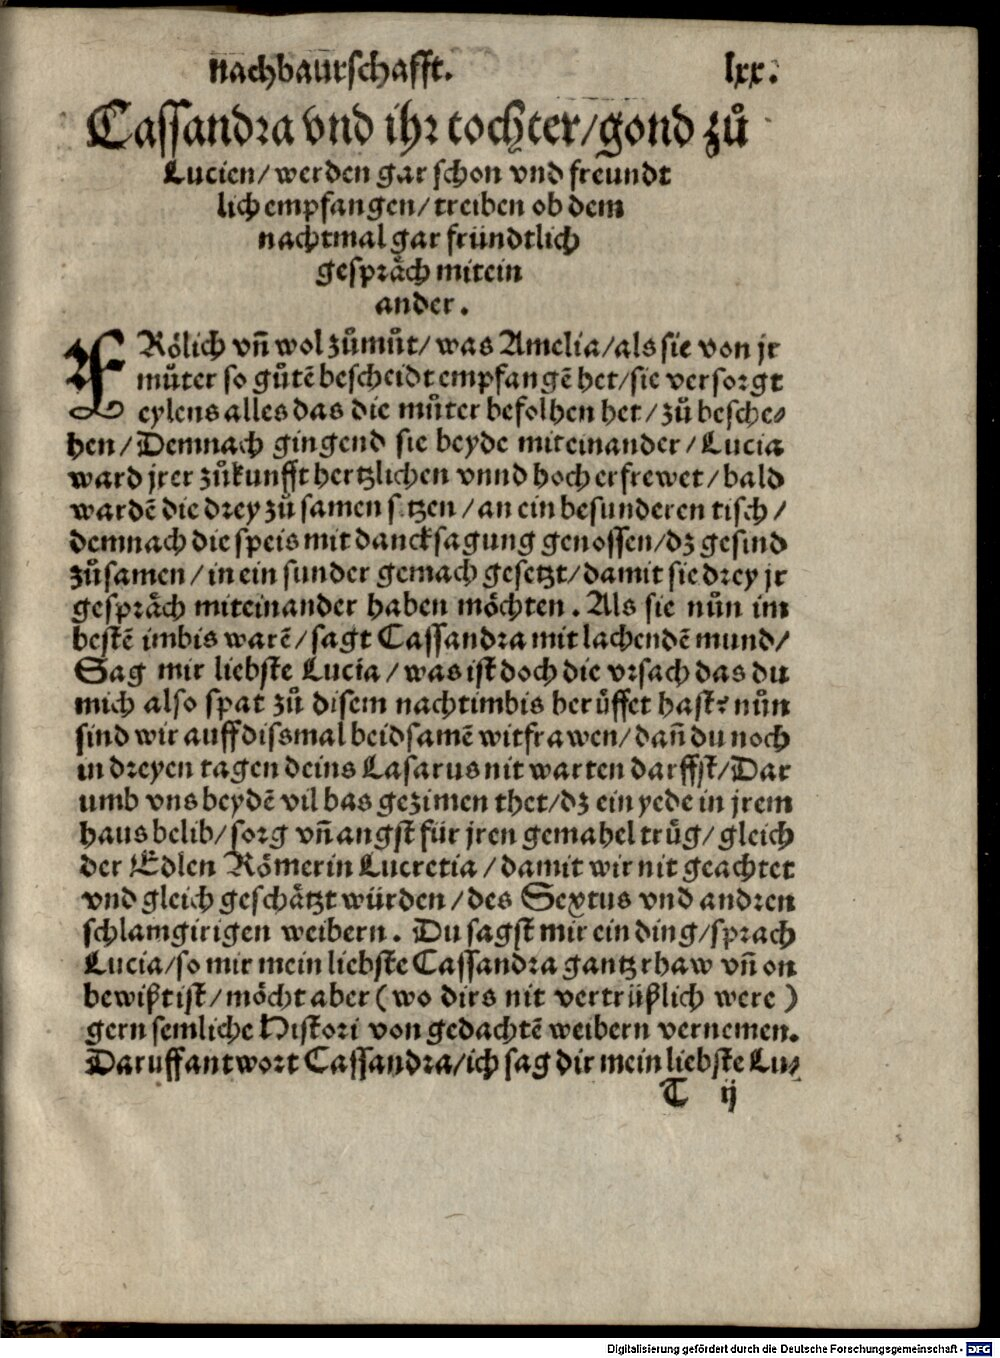 nachbaurschafft. lxx.
Cassandra vnd ihr tochter/gond zů
Lucien/werden gar schon vnd freundt
lich empfangen/treiben ob dem
nachtmal gar fründtlich
gespräch mitein
ander.
FRölich vñ wol zůmůt/was Amelia/als sie von jr
můter so gůtẽ bescheidt empfangẽ het/sie versorgt
eylens alles das die můter befolhen het/zů besche⸗
hen/Demnach gingend sie beyde miteinander/Lucia
ward jrer zůkunfft hertzlichen vnnd hoch erfrewet/bald
wardẽ die drey zů samen sitzen/an ein besunderen tisch/
demnach die speis mit dancksagung genossen/dz gesind
zůsamen/in ein sunder gemach gesetzt/damit sie drey jr
gespräch miteinander haben möchten. Als sie nůn im
bestẽ imbis warẽ/sagt Cassandra mit lachendẽ mund/
Sag mir liebste Lucia/was ist doch die vrsach das du
mich also spat zů disem nachtimbis berüffet hast? nůn
sind wir auff dissmal beidsamẽ witfrawen/dañ du noch
in dreyen tagen deins Lasarus nit warten darffst/Dar
umb vns beydẽ vil bas gezimen thet/dz ein yede in jrem
haus belib/sorg vñ angst für jren gemahel trüg/gleich
der Edlen Römerin Lucretia/damit wir nit geachtet
vnd gleich geschätzt würden/des Sextus vnd andren
schlamgirigen weibern. Du sagst mir ein ding/sprach
Lucia/so mir mein liebste Cassandra gantz rhaw vñ on
bewißt ist/möcht aber (wo dirs nit vertrüßlich were)
gern semliche Histori von gedachtẽ weibern vernemen.
Daruff antwort Cassandra/ich sag dir mein liebste Lu⸗
T ij
Digitalisierung gefördert durch die Deutsche Forschungsgemeinschaft - DFG